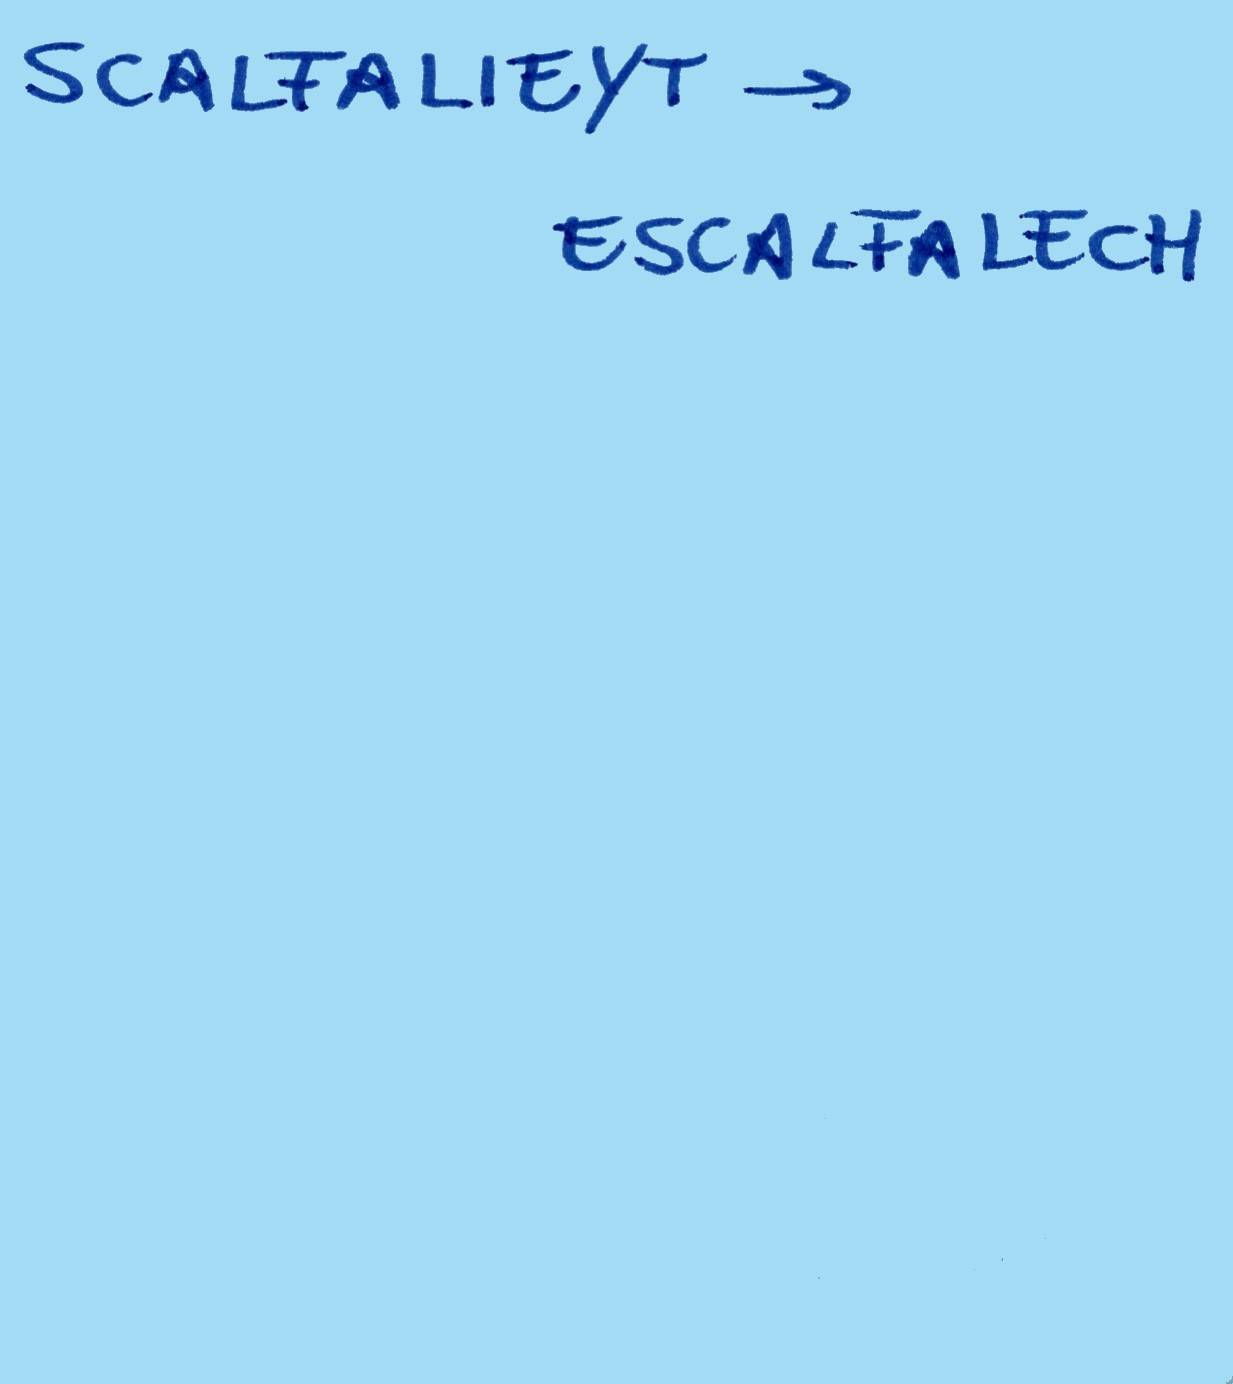 SCALFALIEYT →
ESCALFALECH